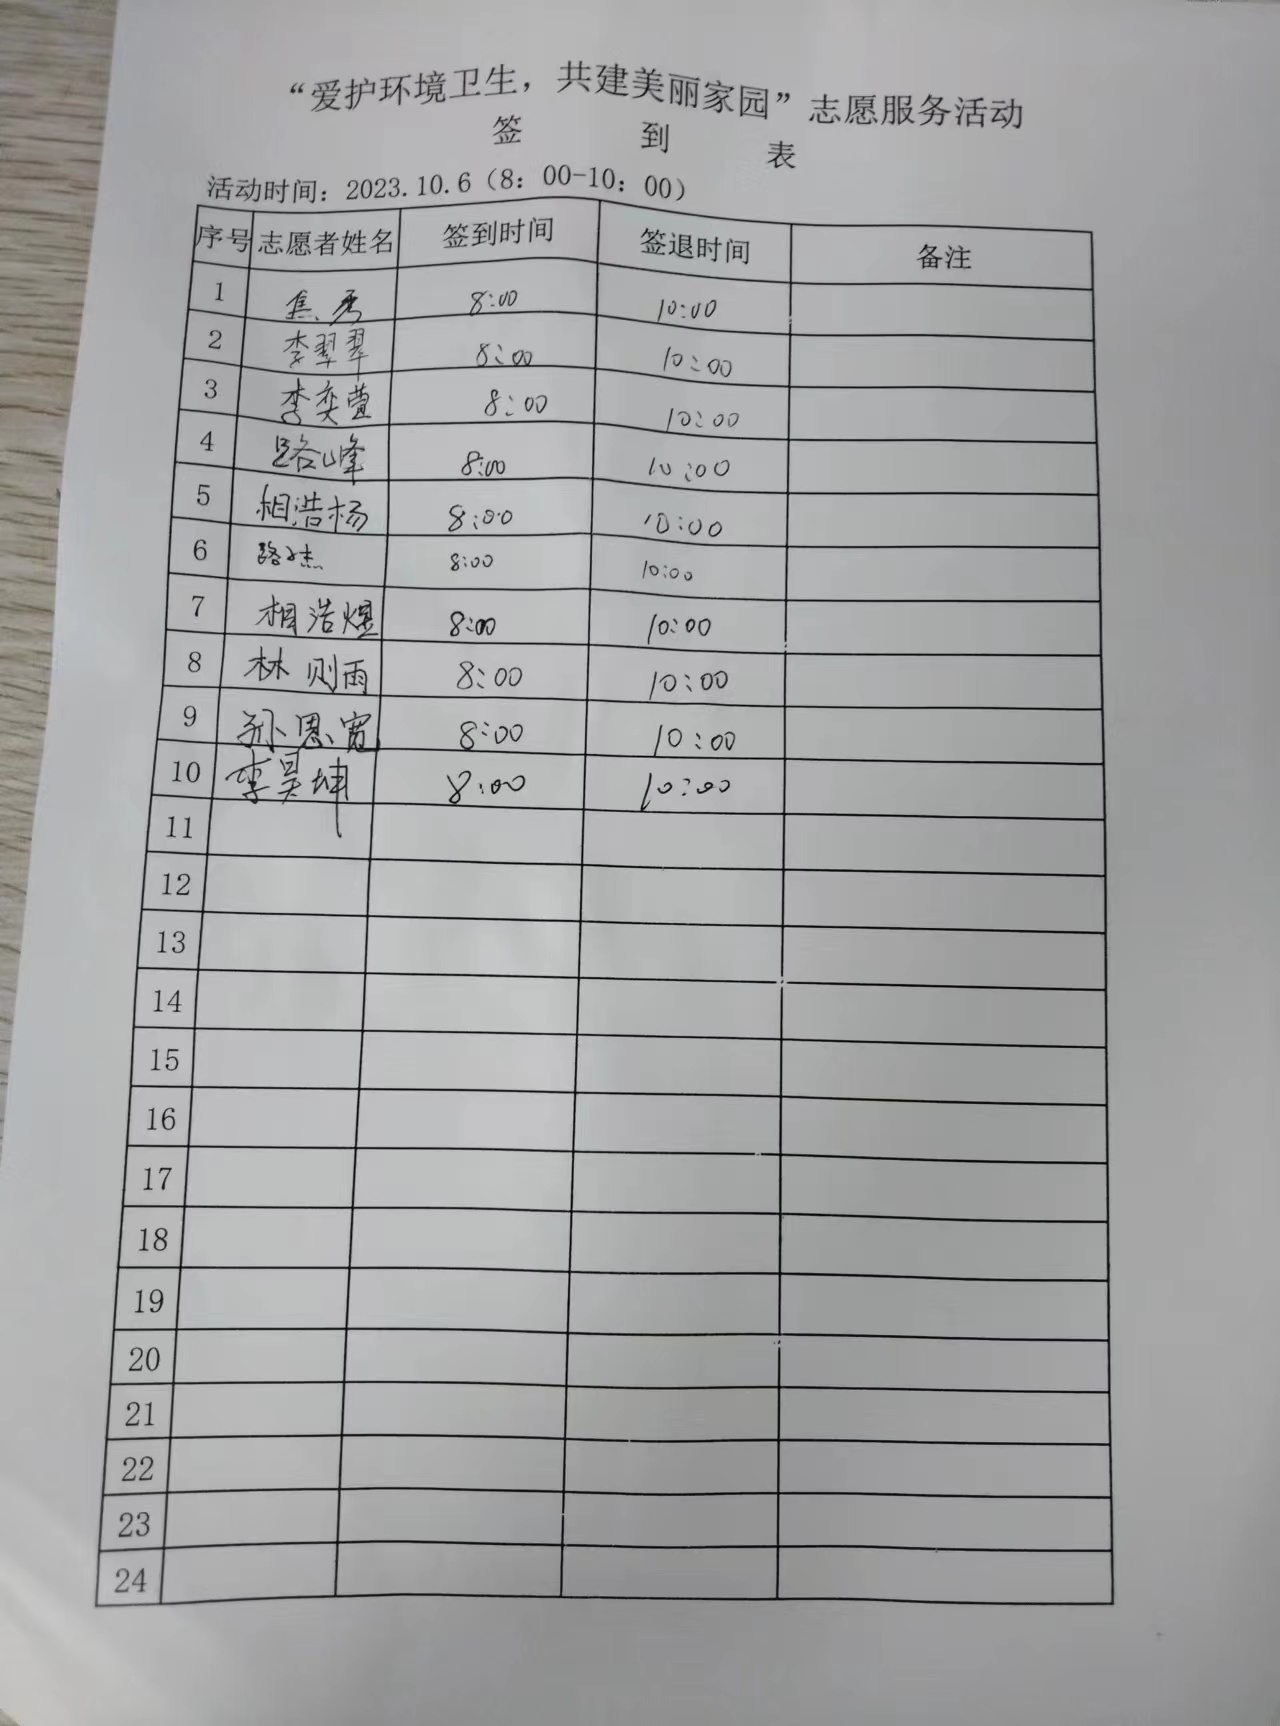 “爱护环境卫生，共建美丽家园”志愿服务活动
签 到 表
活动时间：2023.10.6（8：00-10：00）
序号 志愿者姓名 签到时间 签退时间 备注
1 焦秀 8:00 10:00
2 李翠翠 8:00 10:00
3 李奕萱 8:00 10:00
4 路峰 8:00 10:00
5 相浩杨 8:00 10:00
6 路杰 8:00 10:00
7 相浩煜 8:00 10:00
8 林则雨 8:00 10:00
9 孙恩宽 8:00 10:00
10 李昊坤 8:00 10:00
11
12
13
14
15
16
17
18
19
20
21
22
23
24